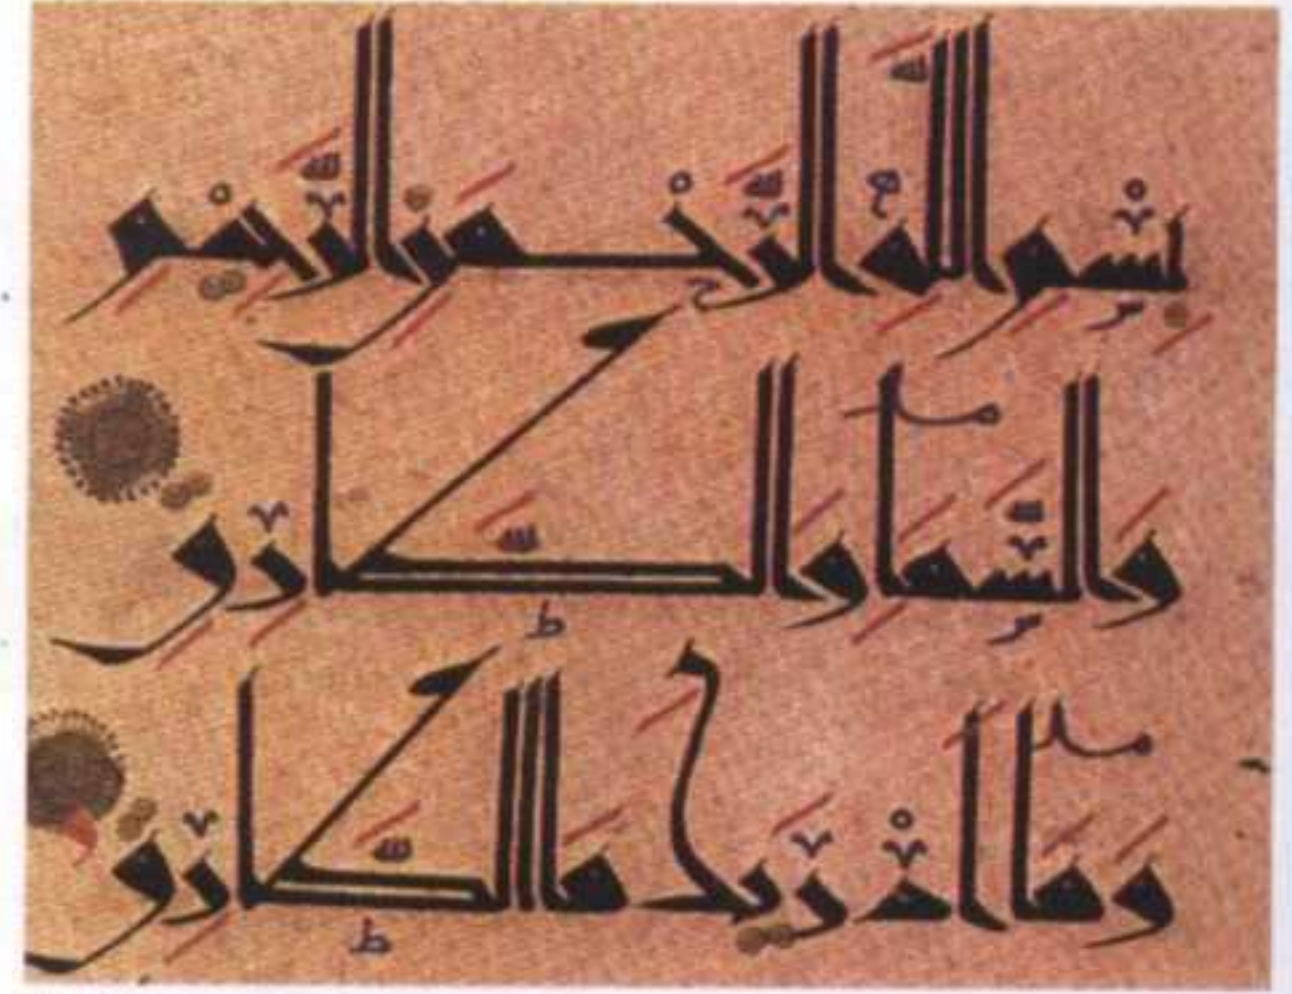 بِسْمِ اللَّهِ الرَّحْمَنِ الرَّحِيمِ
وَالسَّمَاءِ وَالطَّارِقِ
وَمَا أَدْرَيكَ مَا الطَّارِقِ